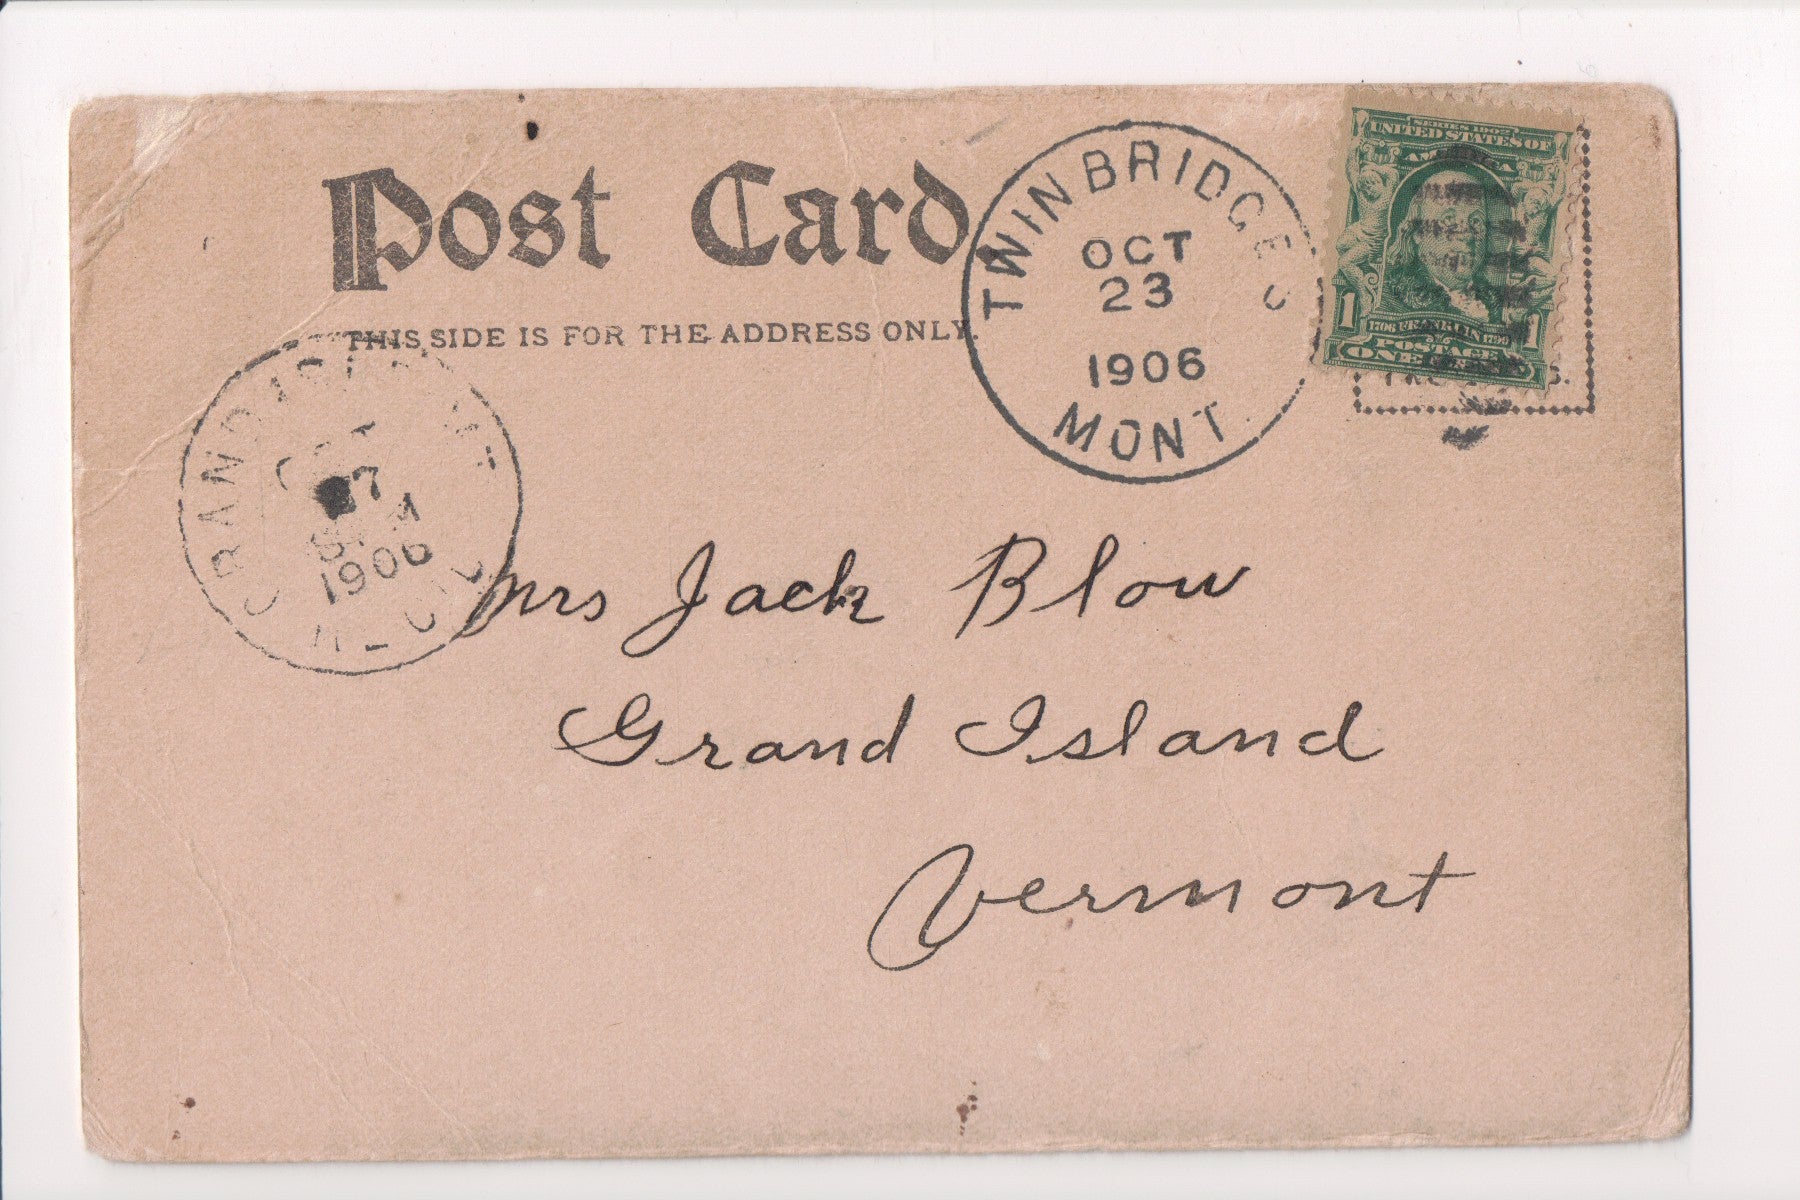 Post Card.
THIS SIDE IS FOR THE ADDRESS ONLY.
TWIN BRIDGES
OCT
23
1906
MONT.
SERIES 1902
UNITED STATES OF
AMERICA
1 1
1706 FRANKLIN 1790
POSTAGE
ONE
GRAND ISLE
1906
Mrs Jack Blow
Grand Island
Vermont